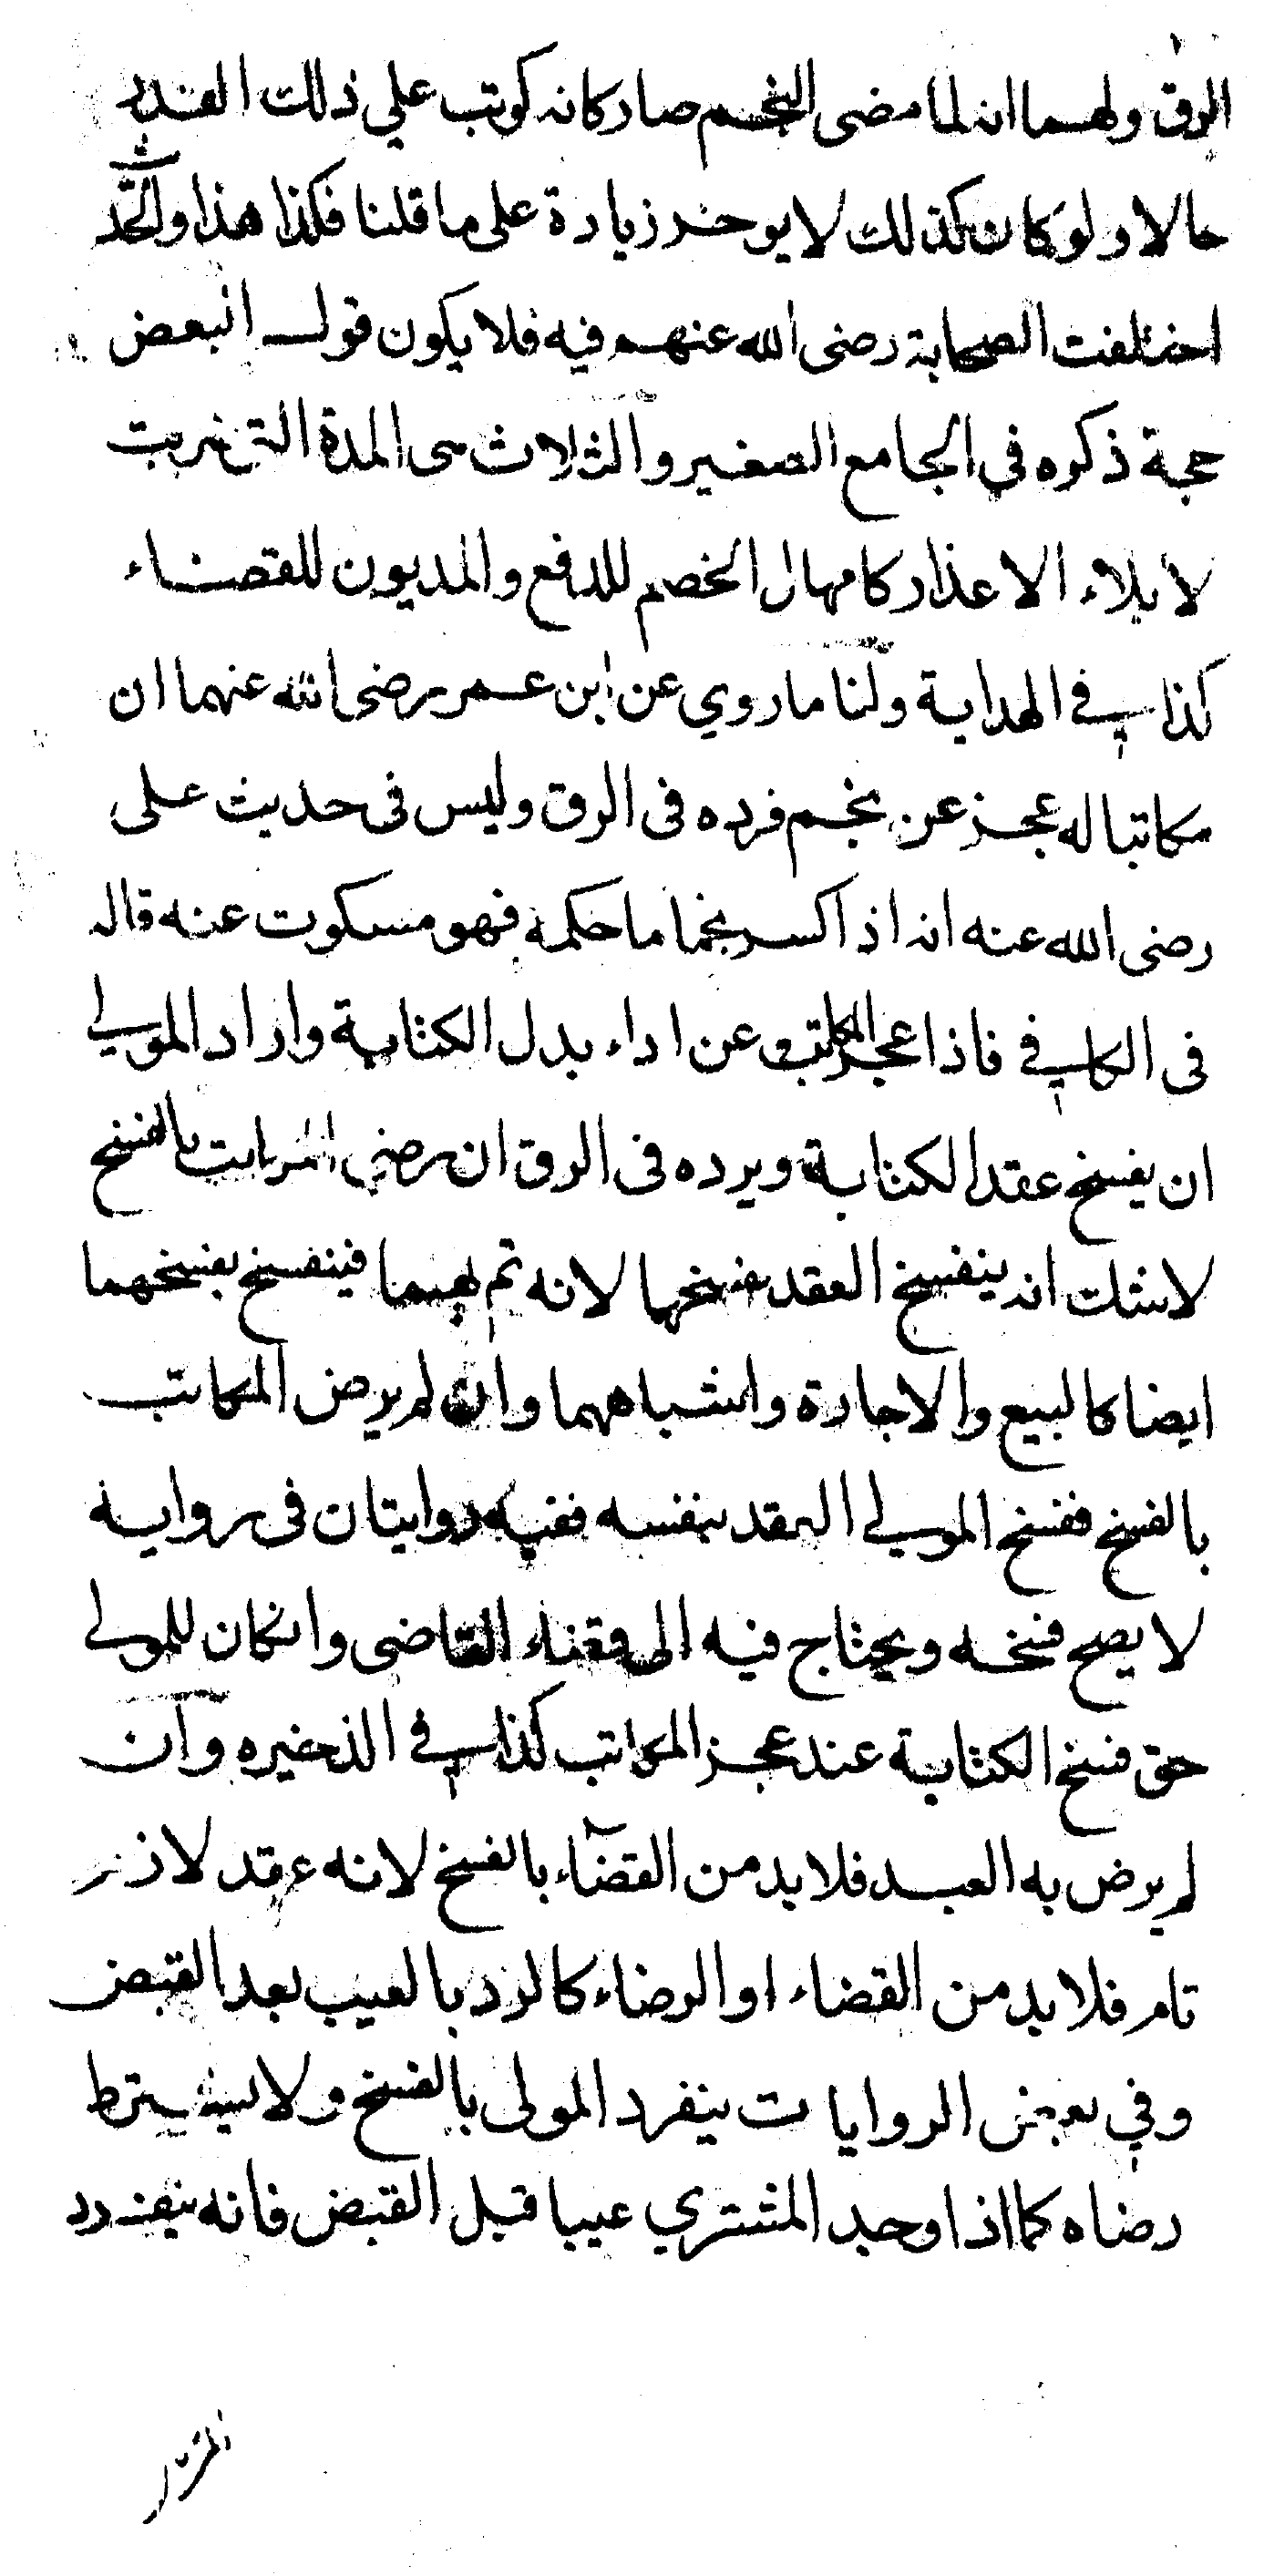 الرق ولهما انه لما مضى النجم صار كانه كوتب علي ذلك القدر
حالا ولو كان كذلك لا يوخذ زيادة على ما قلنا فكذا هذا والحديث قد
اختلفت الصحابة رضى الله عنهم فيه فلا يكون قول البعض
حجة ذكره في الجامع الصغير والثلاث هى المدة التى ضربت
لابلاء الاعذار كامهال الخصم للدفع والمديون للقضاء
كذا في الهداية ولنا ما روي عن ابن عمر رضى الله عنهما ان
مكاتبا له عجز عن نجم فرده فى الرق وليس فى حديث على
رضى الله عنه انه اذا كسر نجما ما حكمه فهو مسكوت عنه قاله
فى الكافي فاذا عجز المكاتب عن اداء بدل الكتابة واراد المولي
ان يفسخ عقد الكتابة ويرده فى الرق ان رضى المكاتب بالفسخ
لا شك انه ينفسخ العقد بفسخهما لانه تم بهما فينفسخ بفسخهما
ايضا كالبيع والاجارة واشباههما وان لم يرض المكاتب
بالفسخ ففسخ المولي العقد بنفسه ففيه روايتان فى رواية
لا يصح فسخه ويحتاج فيه الى قضاء القاضى وان كان للمولي
حق فسخ الكتابة عند عجز المكاتب كذا في الذخيره وان
لم يرض به العبد فلا بد من القضاء بالفسخ لانه عقد لازم
تام فلا بد من القضاء او الرضاء كالرد بالعيب بعد القبض
وفي بعض الروايات ينفرد المولى بالفسخ ولا يشترط
رضاه كما اذا وجد المشتري عيبا قبل القبض فانه ينفرد